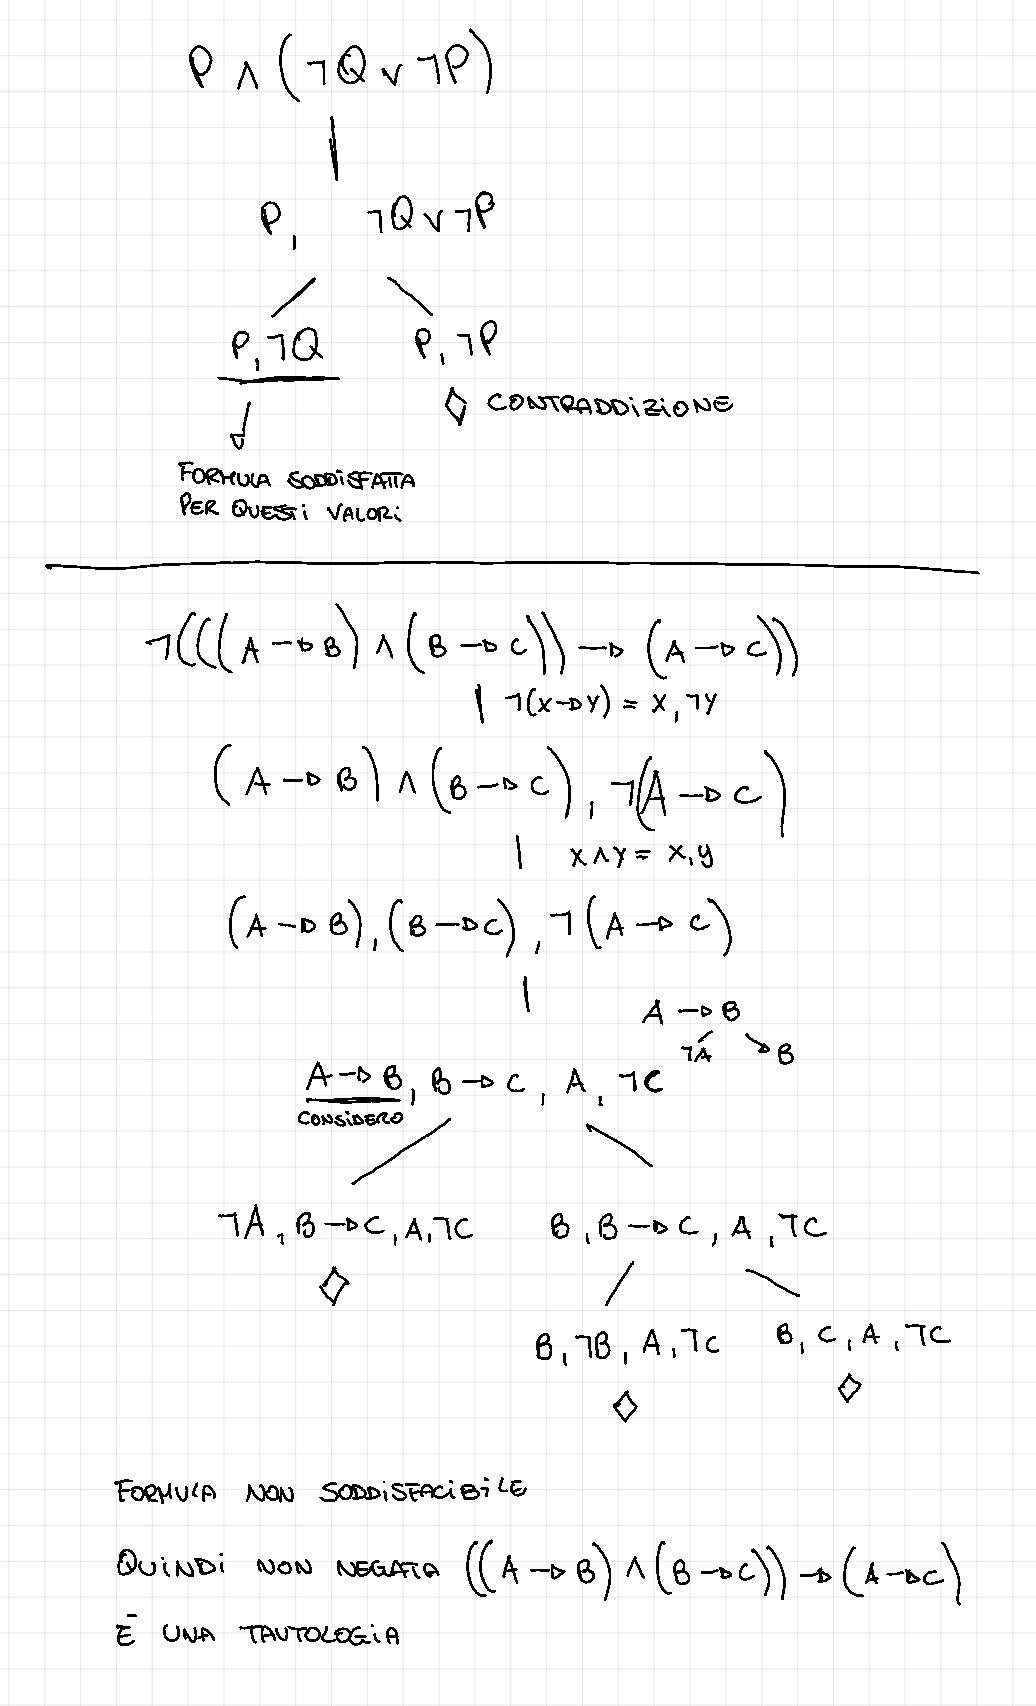 P ∧ (¬Q ∨ ¬P)
P, ¬Q ∨ ¬P
P, ¬Q P, ¬P
◇ CONTRADDIZIONE
FORMULA SODDISFATTA
PER QUESTI VALORI
¬(((A → B) ∧ (B → C)) → (A → C))
¬(X → Y) = X, ¬Y
(A → B) ∧ (B → C), ¬(A → C)
X ∧ Y = X, Y
(A → B), (B → C), ¬(A → C)
A → B
¬A B
A → B, B → C, A, ¬C
CONSIDERO
¬A, B → C, A, ¬C B, B → C, A, ¬C
◇
B, ¬B, A, ¬C B, C, A, ¬C
◇ ◇
FORMULA NON SODDISFACIBILE
QUINDI NON NEGATA ((A → B) ∧ (B → C)) → (A → C)
È UNA TAUTOLOGIA